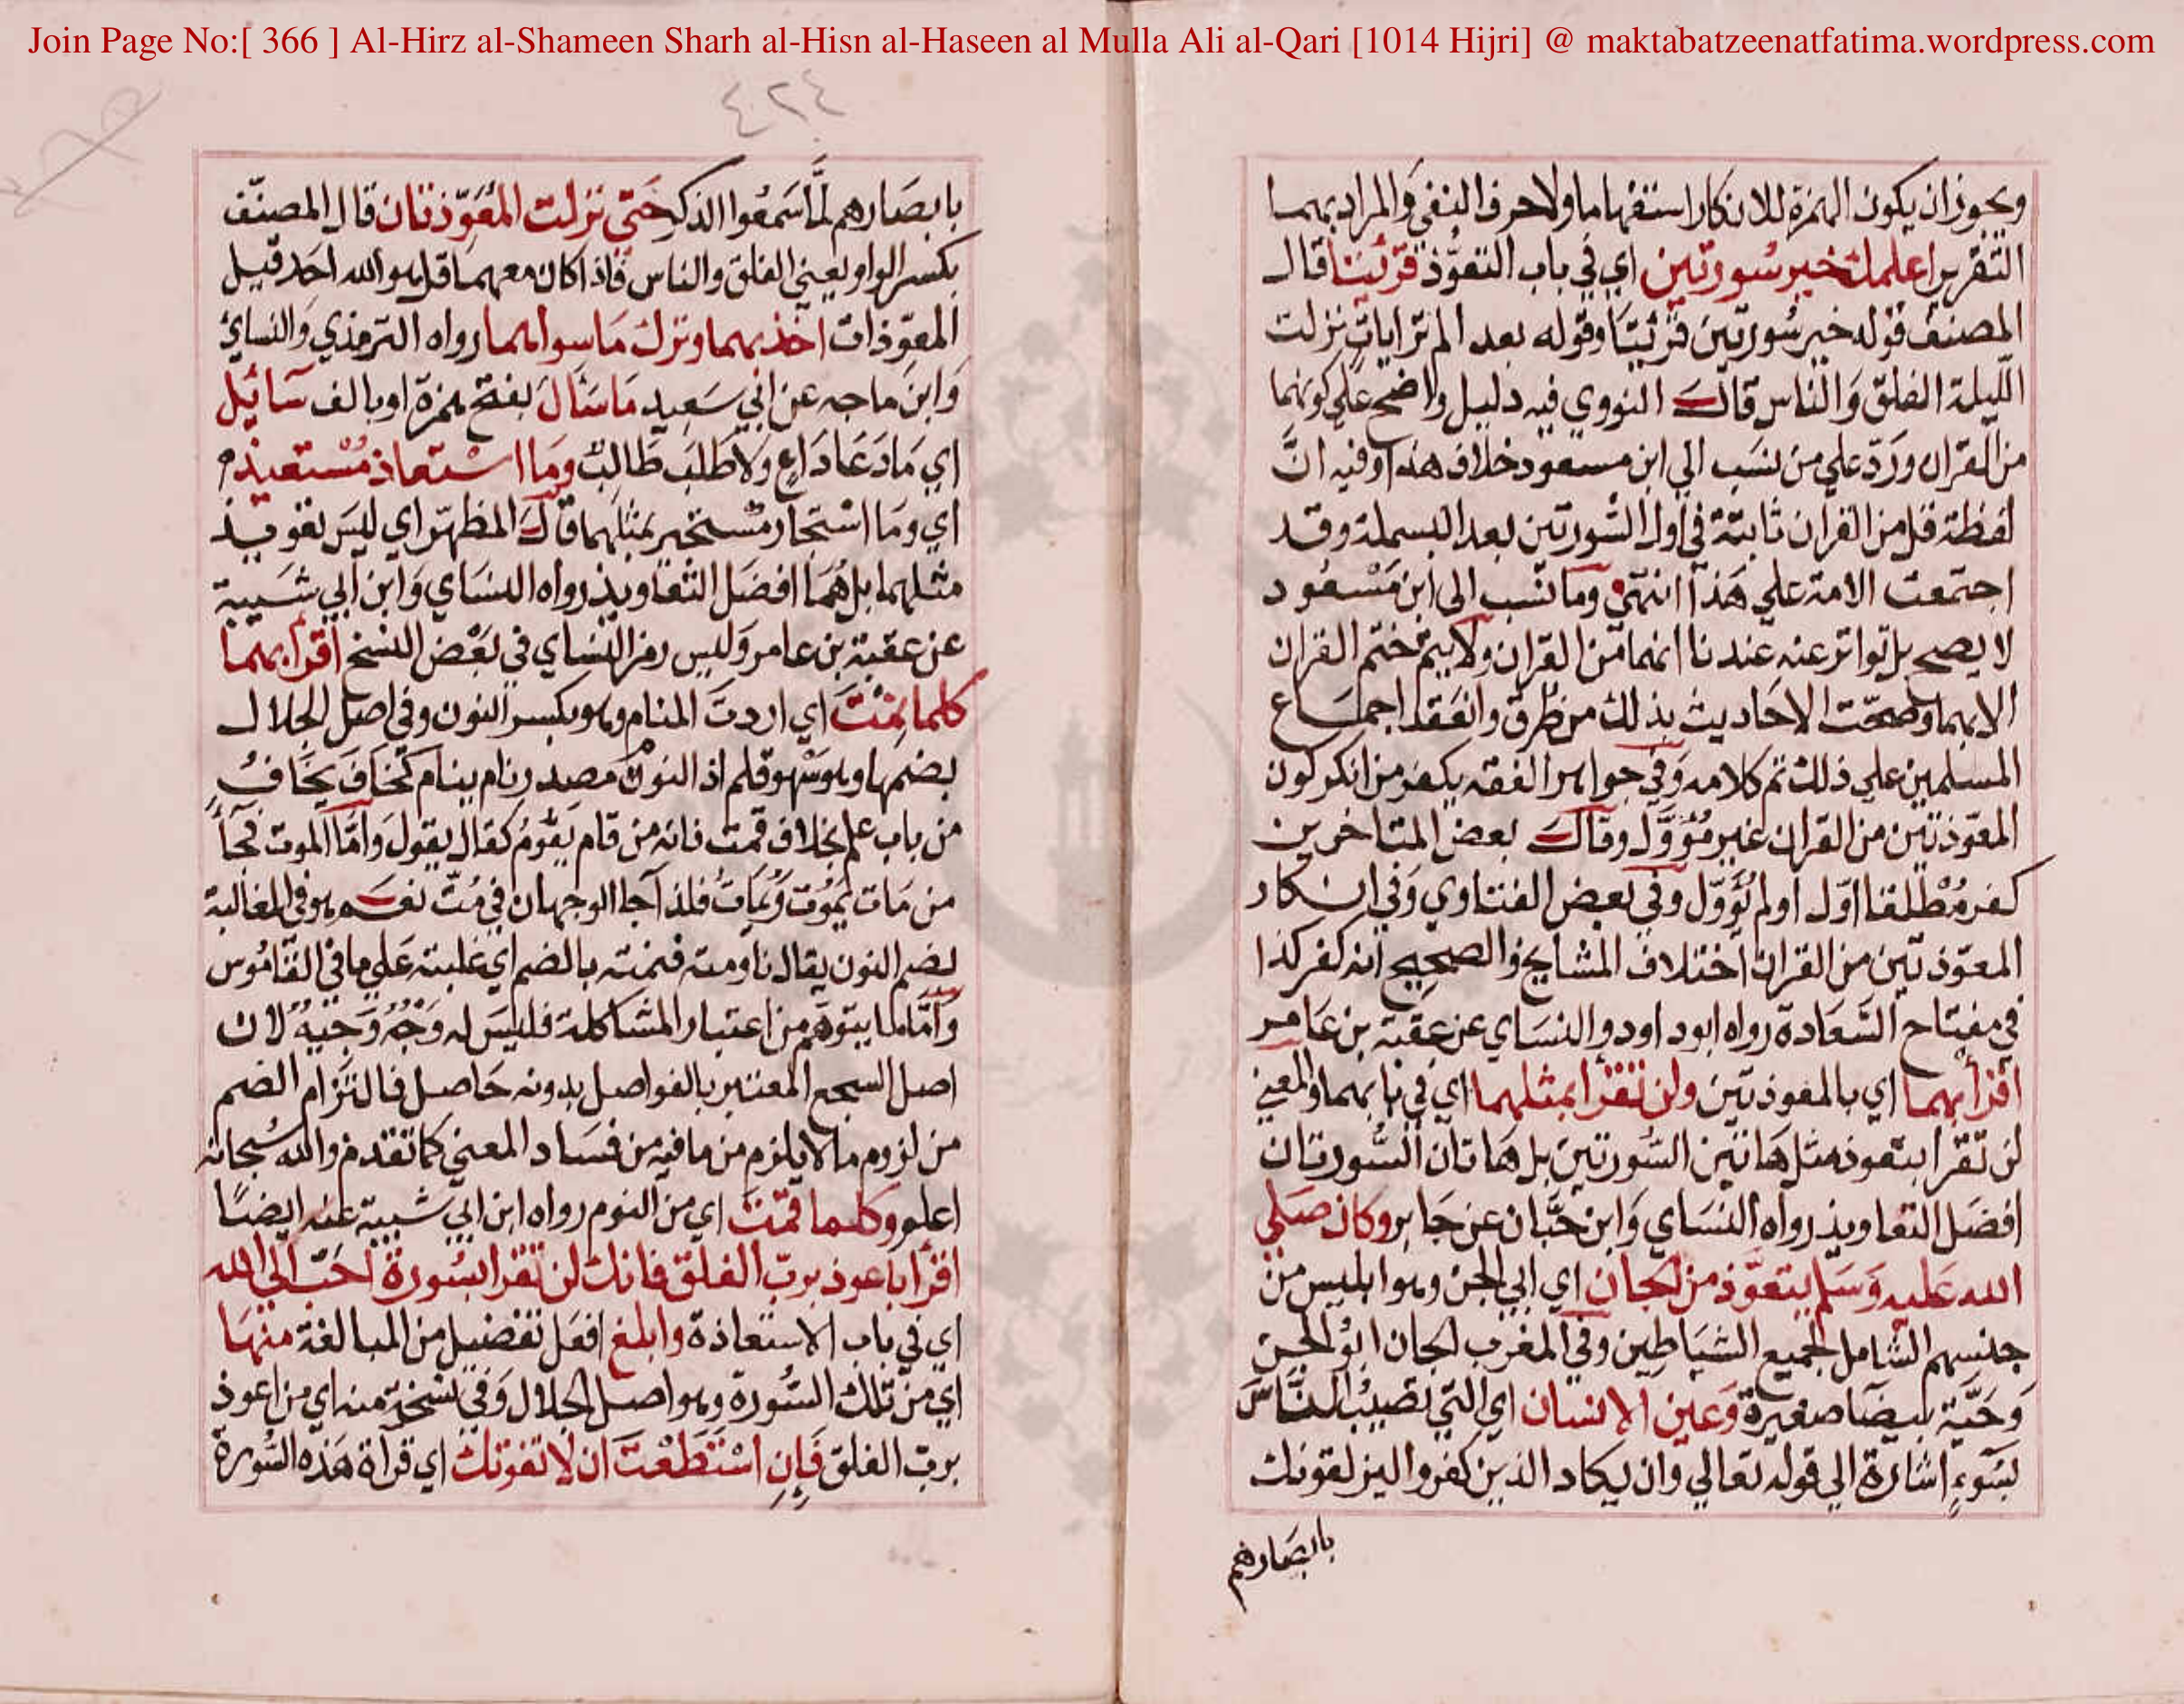 Join Page No:[ 366 ] Al-Hirz al-Shameen Sharh al-Hisn al-Haseen al Mulla Ali al-Qari [1014 Hijri] @ maktabatzeenatfatima.wordpress.com
ويجوز ان يكون الهمزة للانكار استفهاما ولا حرف النفي والمراد بهما
التقرير اعلمك خير سورتين اي في باب التعوذ قرئتا قال
المصنف قوله خير سورتين قرئتا وقوله بعد الم تر ايات نزلت
الليلة الفلق والناس قال النووي فيه دليل واضح علي كونهما
من القران ورد علي من نسب الي ابن مسعود خلاف هذا وفيه ان
لفظة قل من القران ثابتة في اول السورتين بعد البسملة وقد
اجتمعت الامة علي هذا انتهي وما نسب الى ابن مسعود
لا يصح بل تواتر عنه عندنا انهما من القران ولا يتم ختم القران
الا بهما وصحت الاحاديث بذلك من طرق وانعقد اجماع
المسلمين علي ذلك تم كلامه وفي جواهر الفقه يكفر من انكر كون
المعوذتين من القران غير مؤول وقال بعض المتاخرين
كفر مطلقا اول او لم يؤول وفي بعض الفتاوي وفي انكار
المعوذتين من القران اختلاف المشايخ والصحيح انه كفر كذا
في مفتاح السعادة رواه ابو داود والنساي عن عقبة بن عامر
اقرأ بهما اي بالمعوذتين ولن تقرا بمثلهما اي في بابهما والمعني
لن تقرا بتعوذ مثل هاتين السورتين بل هاتان السورتان
افضل التعاويذ رواه النساي وابن حبان عن جابر وكان صلي
الله عليه وسلم يتعوذ من الجان اي ابي الجن وهو ابليس من
جنسهم الشامل لجميع الشياطين وفي المغرب الجان ابو الجن
وحية بيضا صغيرة وعين الانسان اي التي تصيب الناس
بسوء اشارة الي قوله تعالي وان يكاد الذين كفروا ليزلقونك
بابصارهم
٤٢٤
بابصارهم لما سمعوا الذكر حتي نزلت المعوذتان قال المصنف
بكسر الواو يعني الفلق والناس فاذا كان معهما قل هو الله احد قيل
المعوذات اخذ بهما وترك ما سواهما رواه الترمذي والنسائ
وابن ماجه عن ابي سعيد ما سأل بفتح همزة او بالف سائل
اي ما دعا داع ولا طلب طالب وما استعاذ مستعيذ
اي وما استجار مستجير بمثلهما قال المظهر اي ليس تعويذ
مثلهما بل هما افضل التعاويذ رواه النساي وابن ابي شيبة
عن عقبة بن عامر وليس رمز النساي في بعض النسخ اقرا بهما
كلما نمت اي اردت المنام وهو بكسر النون وفي اصل الجلال
بضمها وهو سهو قلم اذ النوم مصدر نام ينام كخاف يخاف
من باب علم بخلاف قمت فانه من قام يقوم كقال يقول واما الموت فجأ
من مات يموت ويمات فلذا جا الوجهان في مت نعم هو في المغالبة
بضم النون يقال ناومته فنمته بالضم اي غلبته علي ما في القاموس
واما ما يتوهم من اعتبار المشاكلة فليس له وجه وجيه لان
اصل السجع المعتبر بالفواصل بدونه حاصل فالتزام الضم
من لزوم ما لا يلزم من ما فيه من فساد المعني كما تقدم والله سبحانه
اعلم وكلما قمت اي من النوم رواه ابن ابي شيبة عنه ايضا
اقرا باعوذ برب الفلق فانك لن تقرا بسورة احب الي الله
اي في باب الاستعاذة وابلغ افعل تفضيل من المبالغة منها
اي من تلك السورة وهو اصل الجلال وفي نسخة منه اي من اعوذ
برب الفلق فان استطعت ان لا تفوتك اي قرأة هذه السورة